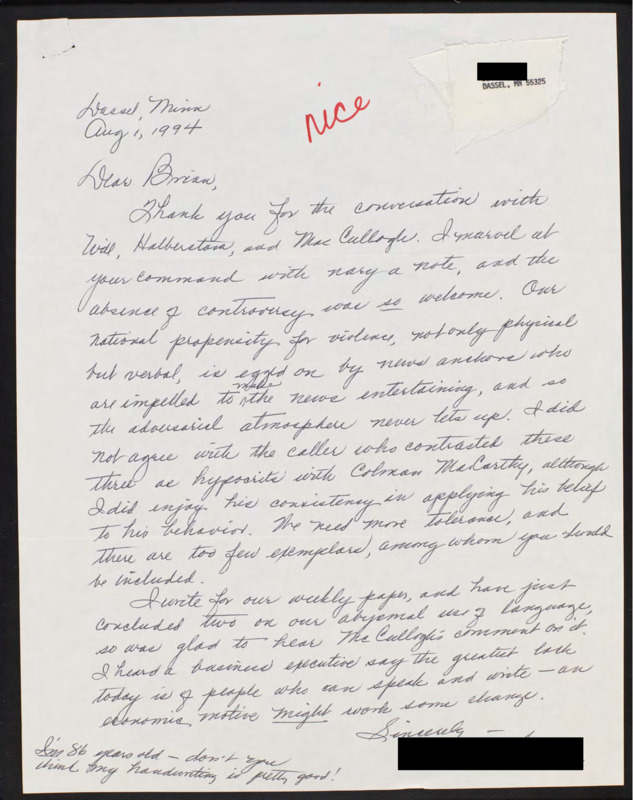 DASSEL, MN 55325
nice
Dassel, Minn
Aug 1, 1994
Dear Brian,
Thank you for the conversation with
Will, Halberstam, and MacCullogh. I marvel at
your command with nary a note, and the
absence of controversy was so welcome. Our
national propensity for violence, not only physical
but verbal, is egged on by news anchors who
are impelled to make the news entertaining, and so
the adversarial atmosphere never lets up. I did
not agree with the caller who contrasted these
three as hypocrits with Colman MaCarthy, although
I did enjoy his consistency in applying his belief
to his behavior. We need more tolerance, and
there are too few exemplars, among whom you should
be included.
I write for our weekly paper, and have just
concluded two on our abysmal use of language,
so was glad to hear McCullogh's comment on it.
I heard a business executive say the greatest lack
today is of people who can speak and write – an
economic motive might work some change.
Sincerely –
I'm 86 years old – don't you
think my handwriting is pretty good!